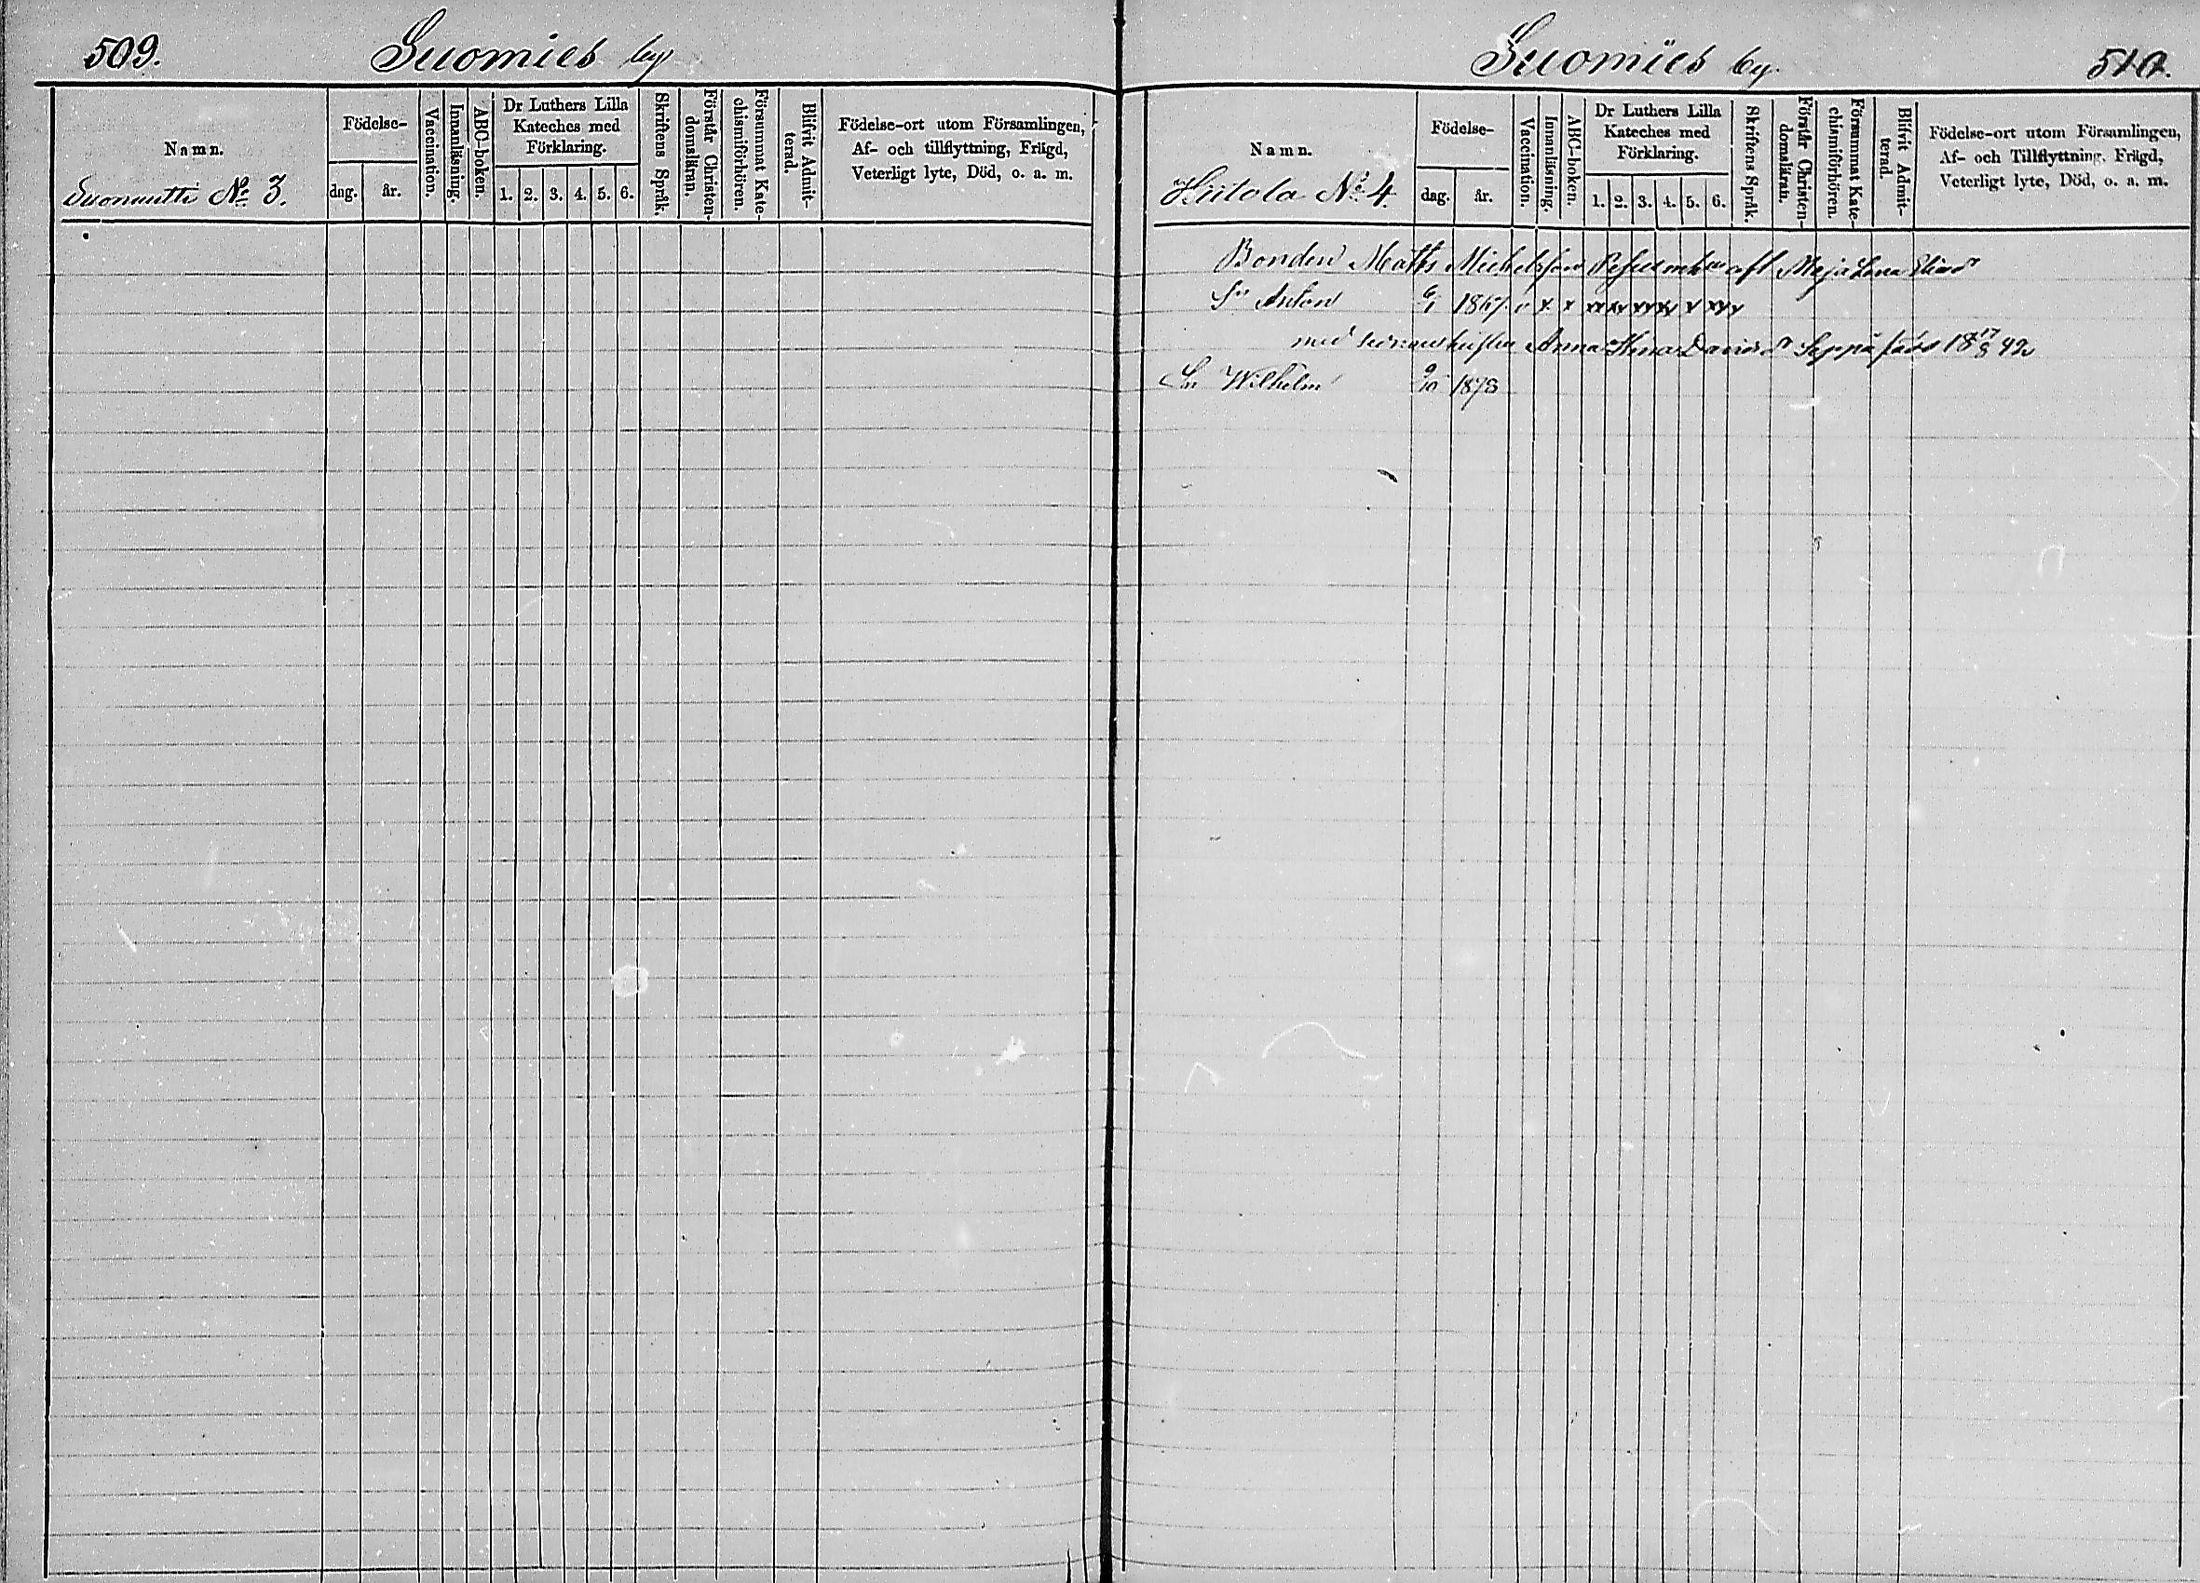 509.
Suomies by
Namn.
Födelse-
dag.
år.
Vaccination.
Innanläsning.
ABC-boken.
Dr Luthers Lilla
Kateches med
Förklaring.
1. 2. 3. 4. 5. 6.
Skriftens Språk.
Förstår Christen-
domsläran.
Försummat Kate-
chismiförhören.
Blifvit Admit-
terad.
Födelse-ort utom Församlingen,
Af- och tillflyttning, Frägd,
Veterligt lyte, Död, o. a. m.
No 3.
Suomies by.
510.
Namn.
Födelse-
dag.
år.
Vaccination.
Innanläsning.
ABC-boken.
Dr Luthers Lilla
Kateches med
Förklaring.
1. 2. 3. 4. 5. 6.
Skriftens Språk.
Förstår Christen-
domsläran.
Försummat Kate-
chismiförhören.
Blifvit Admit-
terad.
Födelse-ort utom Församlingen,
Af- och Tillflyttning, Frägd,
Veterligt lyte, Död, o. a. m.
Hiitola No 4.
Bonden Matts Michelsson Maja Lena Eliasdr
Sn Anton
med Anna Davidsdr Seppä
Sn Wilhelm 9/10 1878